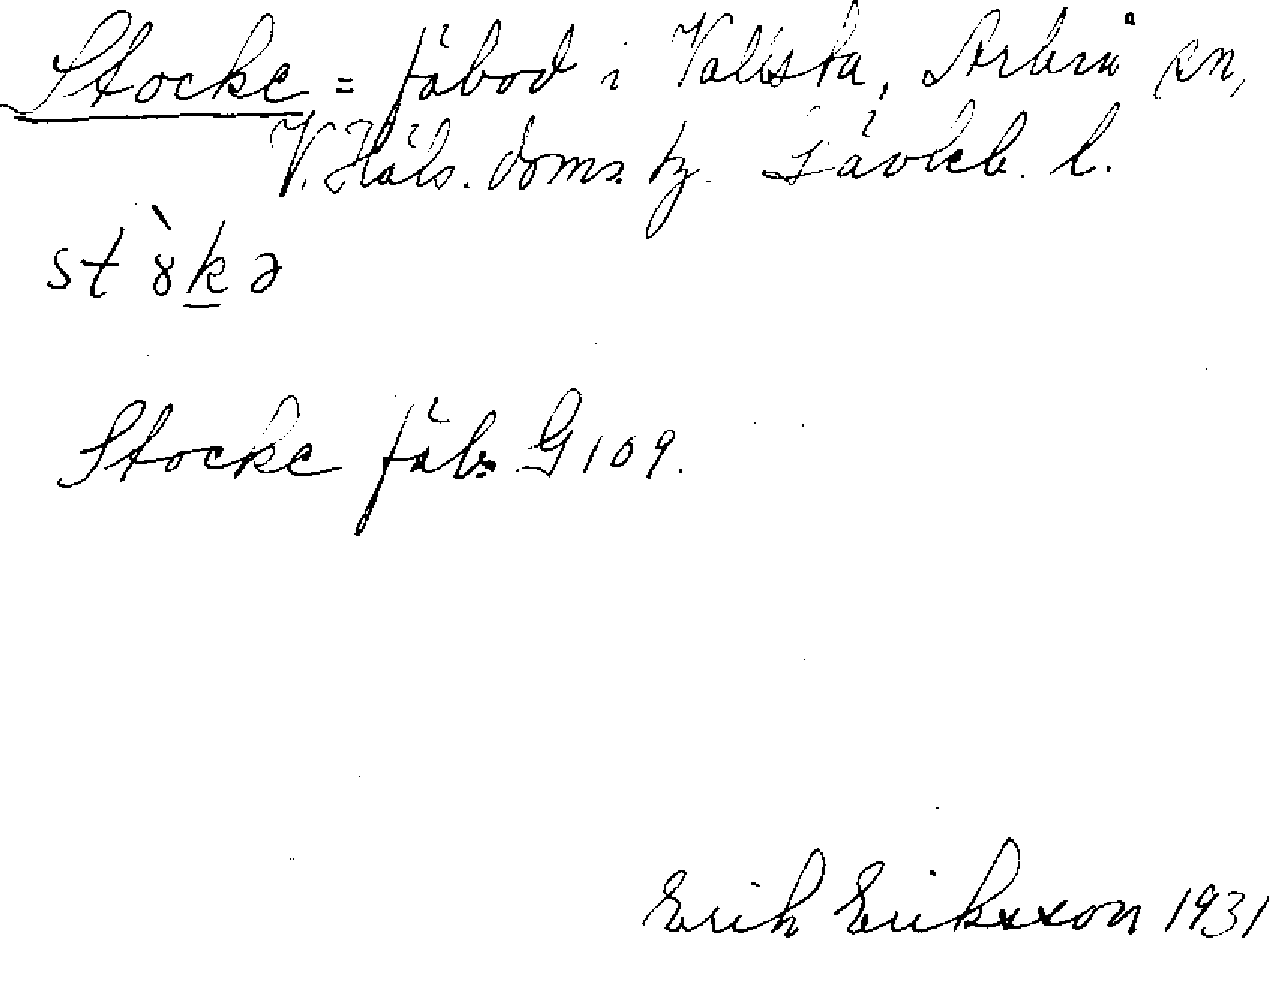 Stocke = fäbod i Vallsta, Arbrå sn,
V. Häls. doms. tz. Gävleb. l.
st`ɤkə
Stocke fäb. G 109.
Erik Eriksson 1931